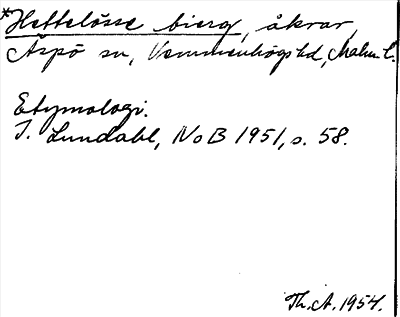 *Hettelösse bierg, åkrar,
Äspö sn, Vemmenhögs hd, Malm. l.
Etymologi.
I. Lundahl, NoB 1951, s. 58.
Th. A. 1954.